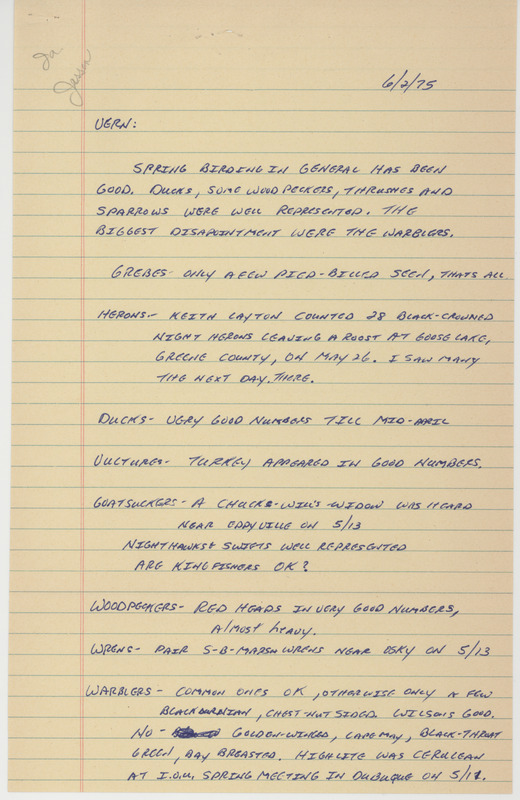 Ia.
Jessen
6/2/75
VERN:
SPRING BIRDING IN GENERAL HAS BEEN
GOOD. DUCKS, SOME WOODPECKERS, THRUSHES AND
SPARROWS WERE WELL REPRESENTED. THE
BIGGEST DISAPOINTMENT WERE THE WARBLERS.
GREBES- ONLY A FEW PIED-BILLED SEEN, THATS ALL.
HERONS- KEITH LAYTON COUNTED 28 BLACK-CROWNED
NIGHT HERONS LEAVING A ROOST AT GOOSE LAKE,
GREENE COUNTY, ON MAY 26. I SAW MANY
THE NEXT DAY. THERE.
DUCKS- VERY GOOD NUMBERS TILL MID-APRIL
VULTURES- TURKEY APPEARED IN GOOD NUMBERS.
GOATSUCKERS- A CHUCKS-WILL'S-WIDOW WAS HEARD
NEAR EDDYVILLE ON 5/13
NIGHTHAWKS & SWIFTS WELL REPRESENTED
ARE KINGFISHERS OK?
WOODPECKERS- RED HEADS IN VERY GOOD NUMBERS,
Almost heavy.
WRENS- PAIR S-B-MARSH WRENS NEAR OSKY ON 5/13
WARBLERS- COMMON ONES OK, OTHERWISE ONLY A FEW
BLACKBURNIAN, CHEST-NUT SIDED. WILSONS GOOD.
NO- GOLDEN-WINGED, CAPE MAY, BLACK-THROAT
GREEN, BAY BREASTED. HIGHLITE WAS CERULEAN
AT I.O.U. SPRING MEETING IN DUBUQUE ON 5/11.